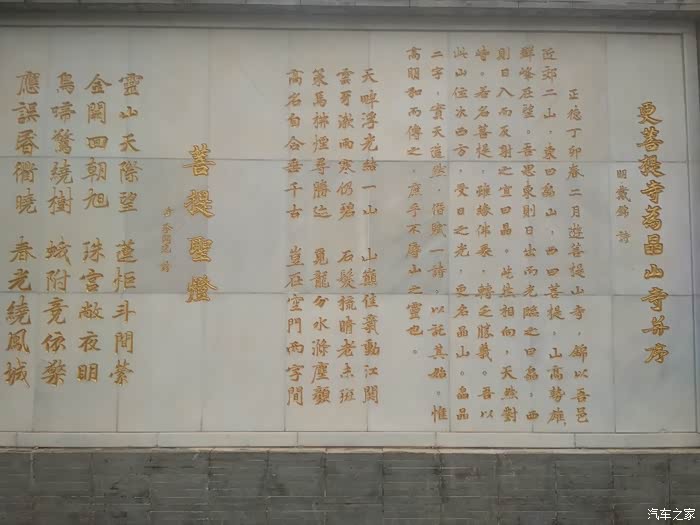 更菩提寺為晶山寺并序
明 戴錦 詩
正德丁卯春二月遊菩提山寺，錦以吾邑
近郊二山，東曰晶山，西曰菩提，山高勢雄，
群峰
吾思東則日出而光臨之曰晶，西
則日入而反對之宜曰晶。
相向，天然對
峙。若名菩提，雖緣佛氏，轉之勝義。吾以
此山位次西方，受日之光，更名晶山。晶晶
二字，實天造然，
賦一詩，以託其始。惟
高明和而傳之，庶乎不辱山之靈也。
天畔浮光結一山 山嶺佳氣動江關
雲
寒仍碧 石髮梳晴老
斑
策馬
尋勝迹 覓龍分水滌塵顏
高名自合垂千古 豈在空門兩字間
菩提聖燈
詩
靈山天際望 蓮炬斗間榮
金闕回朝旭 珠宮敞夜明
烏啼驚繞樹 蛾附竞
應誤春衢曉 春光繞鳳城
汽车之家